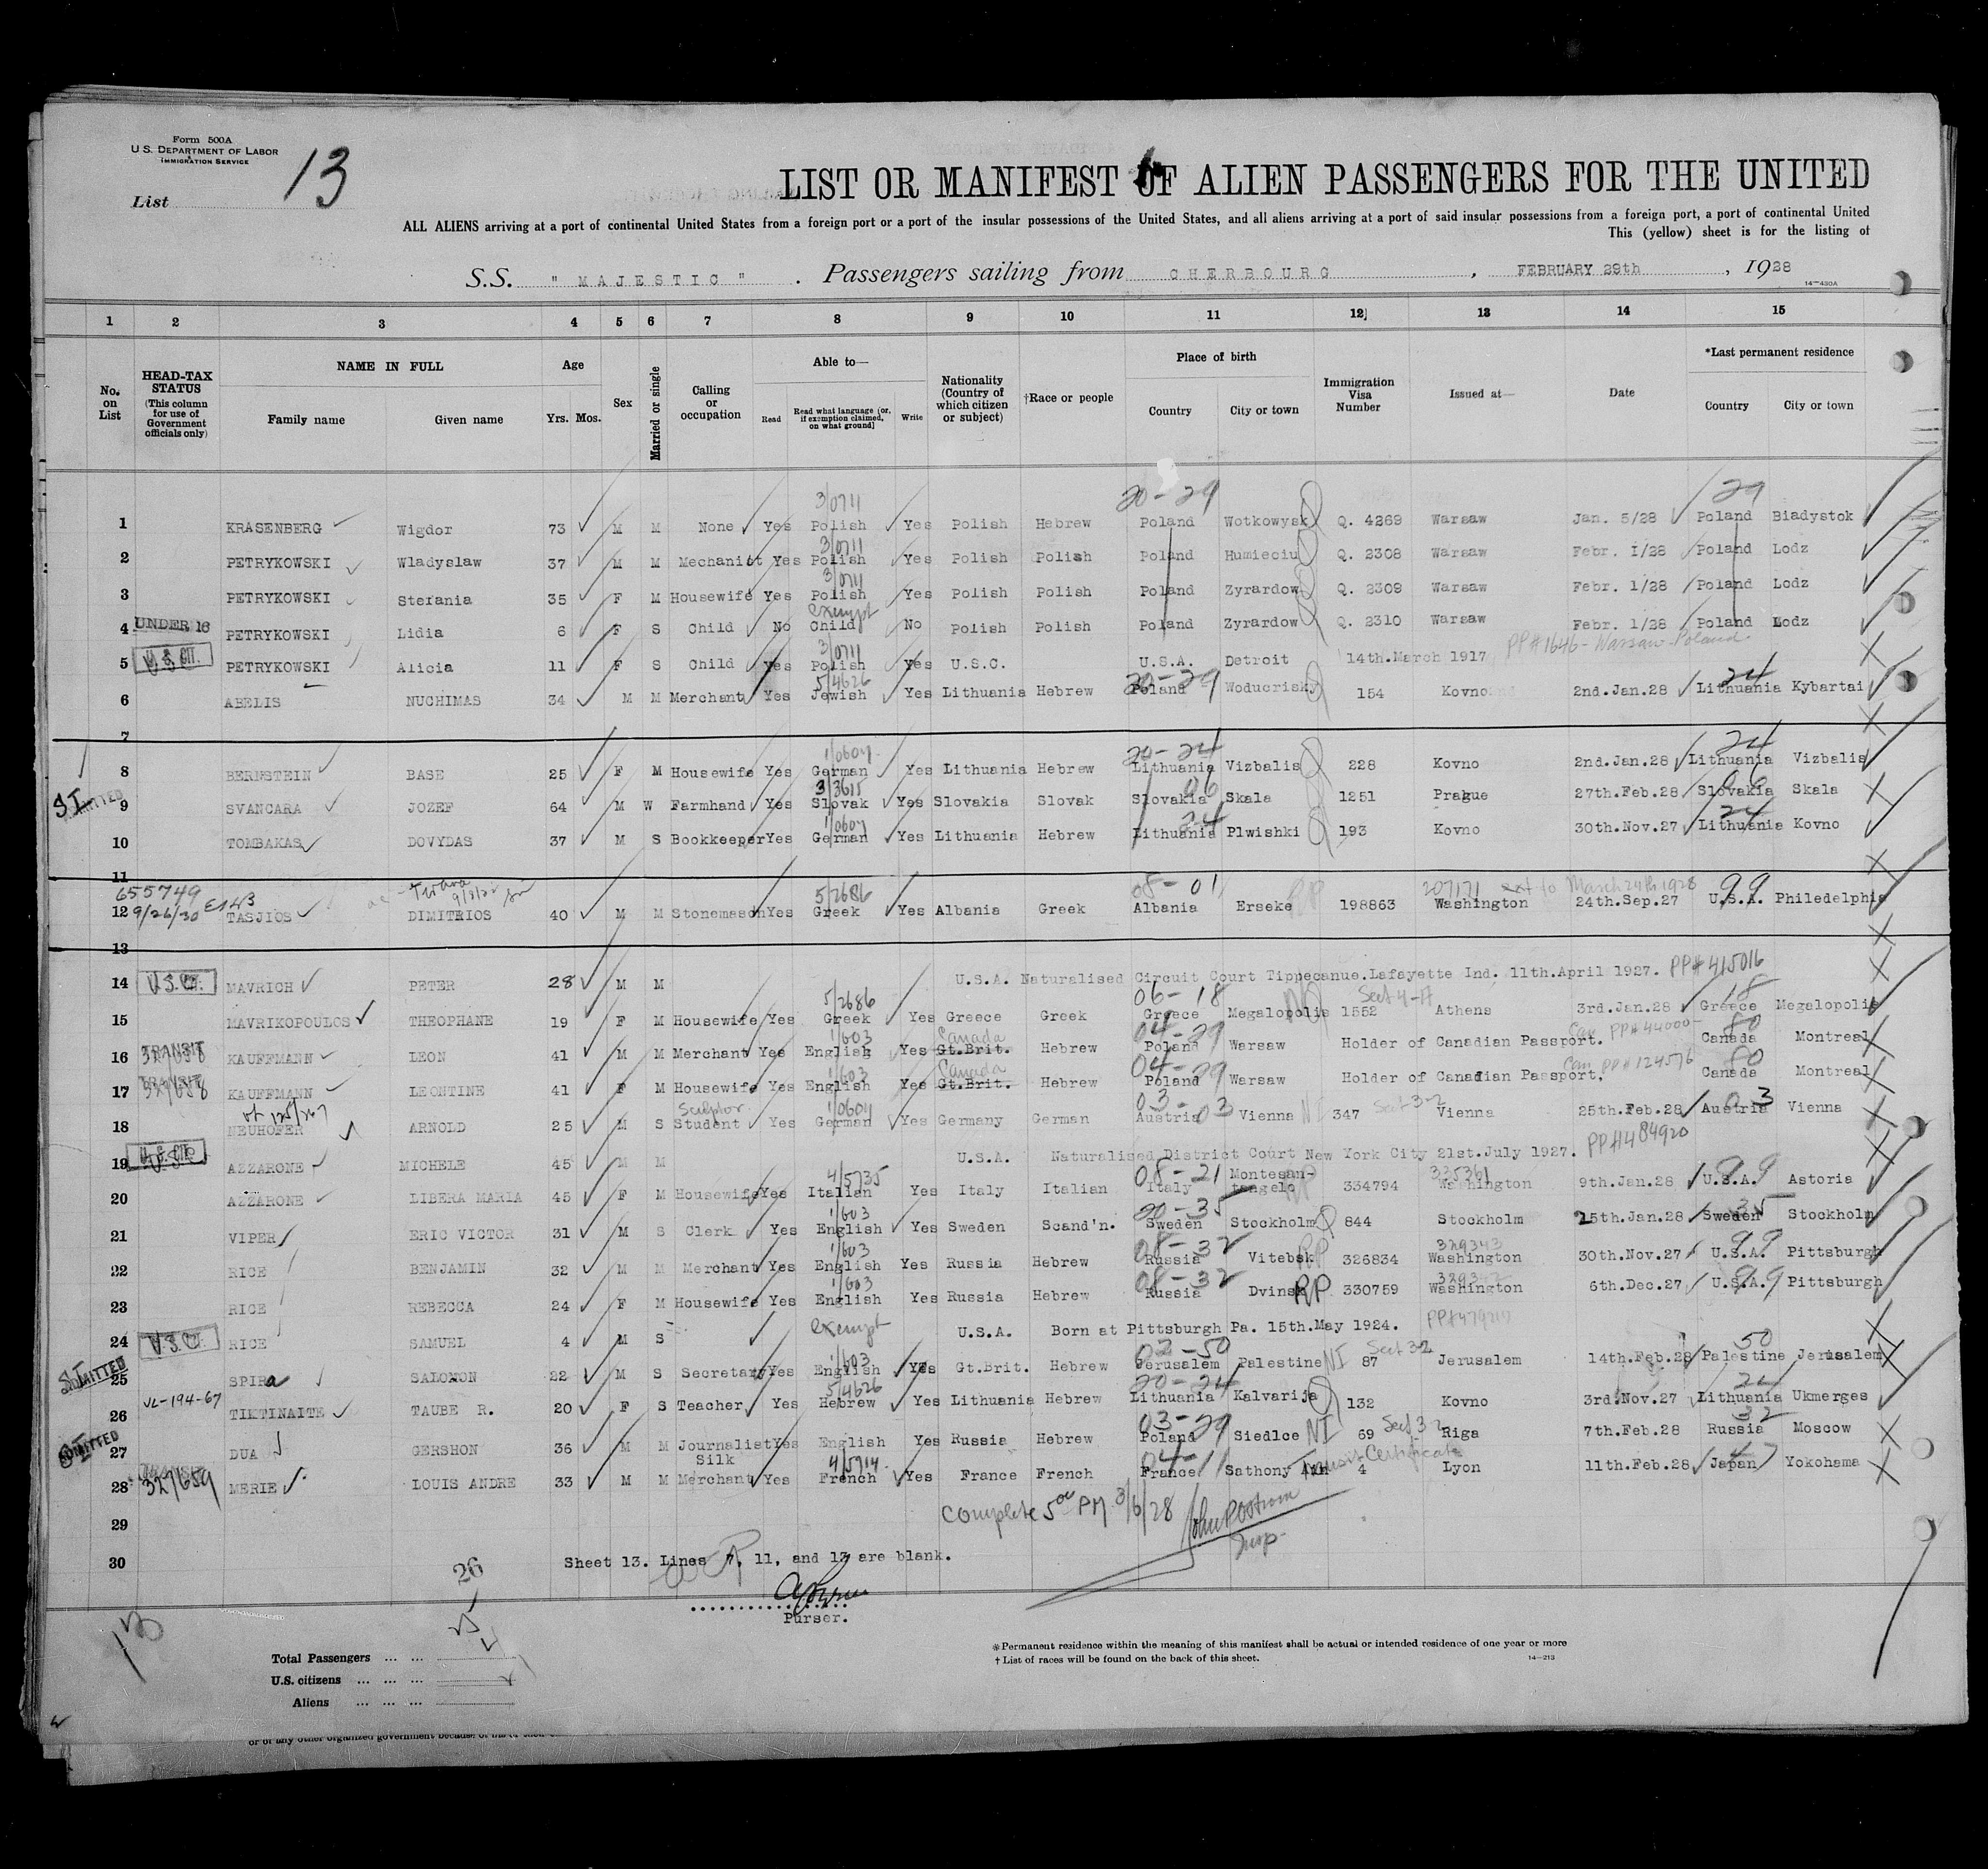 Form 500A
U. S. DEPARTMENT OF LABOR
IMMIGRATION SERVICE
List 13
LIST OR MANIFEST OF ALIEN PASSENGERS FOR THE UNITED
ALL ALIENS arriving at a port of continental United States from a foreign port or a port of the insular possessions of the United States, and all aliens arriving at a port of said insular possessions from a foreign port, a port of continental United
This (yellow) sheet is for the listing of
S.S. " MAJESTIC " . Passengers sailing from CHERBOURG , FEBRUARY 29th , 1928
14—430A
1 2 3 4 5 6 7 8 9 10 11 12 13 14 15
No. on List
HEAD-TAX STATUS (This column for use of Government officials only)
NAME IN FULL
Family name Given name
Age
Yrs. Mos.
Sex
Married or single
Calling or occupation
Able to—
Read Read what language (or, if exemption claimed, on what ground) Write
Nationality (Country of which citizen or subject)
†Race or people
Place of birth
Country City or town
Immigration Visa Number
Issued at—
Date
*Last permanent residence
Country City or town
3/0711 20-29 29
1 KRASENBERG Wigdor 73 M M None Yes Polish Yes Polish Hebrew Poland Wotkowysk Q. 4269 Warsaw Jan. 5/28 Poland Biadystok
3/0711
2 PETRYKOWSKI Wladyslaw 37 M M Mechanitt Yes Polish Yes Polish Polish Poland Humieciu Q. 2308 Warsaw Febr. 1/28 Poland Lodz
3/0711
3 PETRYKOWSKI Stefania 35 F M Housewife Yes Polish Yes Polish Polish Poland Zyrardow Q. 2309 Warsaw Febr. 1/28 Poland Lodz
exempt
4 UNDER 16 PETRYKOWSKI Lidia 6 F S Child No Child No Polish Polish Poland Zyrardow Q. 2310 Warsaw Febr. 1/28 Poland Lodz
3/0711 PP#1646-Warsaw-Poland
5 U.S. CIT. PETRYKOWSKI Alicia 11 F S Child Yes Polish Yes U.S.C. U.S.A. Detroit 14th.March 1917
5/4626 20-29 24
6 ABELIS NUCHIMAS 34 M M Merchant Yes Jewish Yes Lithuania Hebrew Poland Woducrisky 154 Kovno 2nd.Jan.28 Lithuania Kybartai
7
1/0604 20-24 24
8 BERNSTEIN BASE 25 F M Housewife Yes German Yes Lithuania Hebrew Lithuania Vizbalis 228 Kovno 2nd.Jan.28 Lithuania Vizbalis
3/3615 06 06
9 SVANCARA JOZEF 64 M W Farmhand Yes Slovak Yes Slovakia Slovak Slovakia Skala 1251 Prague 27th.Feb.28 Slovakia Skala
1/0604 24 24
10 TOMBAKAS DOVYDAS 37 M S Bookkeeper Yes German Yes Lithuania Hebrew Lithuania Plwishki 193 Kovno 30th.Nov.27 Lithuania Kovno
11
655749 5/2686 08-01 207171 ext to March 24th 1928 99
12 9/26/30 TASJIOS DIMITRIOS 40 M M Stonemason Yes Greek Yes Albania Greek Albania Erseke RP 198863 Washington 24th.Sep.27 U.S.A. Philadelphia
13
14 MAVRICH PETER 28 M M U.S.A. Naturalised Circuit Court Tippecanue.Lafayette Ind. 11th.April 1927. PP# 415016
5/2686 06-18 Sect 4-A 18
15 MAVRIKOPOULOS THEOPHANE 19 F M Housewife Yes Greek Yes Greece Greek Greece Megalopolis 1552 Athens 3rd.Jan.28 Greece Megalopolis
1/603 Canada 04-29 Can PP# 44000 80
16 TRANSIT KAUFFMANN LEON 41 M M Merchant Yes English Yes Gt.Brit. Hebrew Poland Warsaw Holder of Canadian Passport. Canada Montreal
1/603 Canada 04-29 Can PP# 124576 80
17 KAUFFMANN LEONTINE 41 F M Housewife Yes English Yes Gt.Brit. Hebrew Poland Warsaw Holder of Canadian Passport. Canada Montreal
Sculptor 1/0604 03-03 Sect 3-2 03
18 NEUHOFER ARNOLD 25 M S Student Yes German Yes Germany German Austria Vienna NI 347 Vienna 25th.Feb.28 Austria Vienna
PP#484920
19 U.S. CIT. AZZARONE MICHELE 45 M M U.S.A. Naturalised District Court New York City 21st.July 1927.
4/5735 08-21 Montesan- 335361 99
20 AZZARONE LIBERA MARIA 45 F M Housewife Yes Italian Yes Italy Italian Italy tangelo 334794 Washington 9th.Jan.28 U.S.A. Astoria
1/603 20-35 35
21 VIPER ERIC VICTOR 31 M S Clerk Yes English Yes Sweden Scand'n. Sweden Stockholm 844 Stockholm 25th.Jan.28 Sweden Stockholm
1/603 08-32 329343 99
22 RICE BENJAMIN 32 M M Merchant Yes English Yes Russia Hebrew Russia Vitebsk RP 326834 Washington 30th.Nov.27 U.S.A. Pittsburgh
1/603 08-32 99
23 RICE REBECCA 24 F M Housewife Yes English Yes Russia Hebrew Russia Dvinsk RP 330759 Washington 6th.Dec.27 U.S.A. Pittsburgh
exempt
24 RICE SAMUEL 4 M S U.S.A. Born at Pittsburgh Pa. 15th.May 1924.
1/603 02-50 Sect 3-2 50
25 ADMITTED SPIRa SALOMON 22 M S Secretary Yes English Yes Gt.Brit. Hebrew Jerusalem Palestine NI 87 Jerusalem 14th.Feb.28 Palestine Jerusalem
VL-194-67 5/4626 20-24 24
26 TIKTINAITE TAUBE R. 20 F S Teacher Yes Hebrew Yes Lithuania Hebrew Lithuania Kalvarija 132 Kovno 3rd.Nov.27 Lithuania Ukmerges
03-29 Sect 3-2 32
27 DUA GERSHON 36 M M Journalist Yes English Yes Russia Hebrew Poland Siedlce NI 69 Riga 7th.Feb.28 Russia Moscow
Silk 4/5714 04-11 Transit Certificate
28 327659 MERIE LOUIS ANDRE 33 M M Merchant Yes French Yes France French France Sathony Ain 4 Lyon 11th.Feb.28 Japan Yokohama
Complete 5 00 PM 3/6/28
29
30 Sheet 13. Lines 7, 11, and 13 are blank.
Insp.
26
Purser.
13
Total Passengers ... ...
U.S. citizens ... ... ...
Aliens ... ... ...
*Permanent residence within the meaning of this manifest shall be actual or intended residence of one year or more
† List of races will be found on the back of this sheet.
14—213